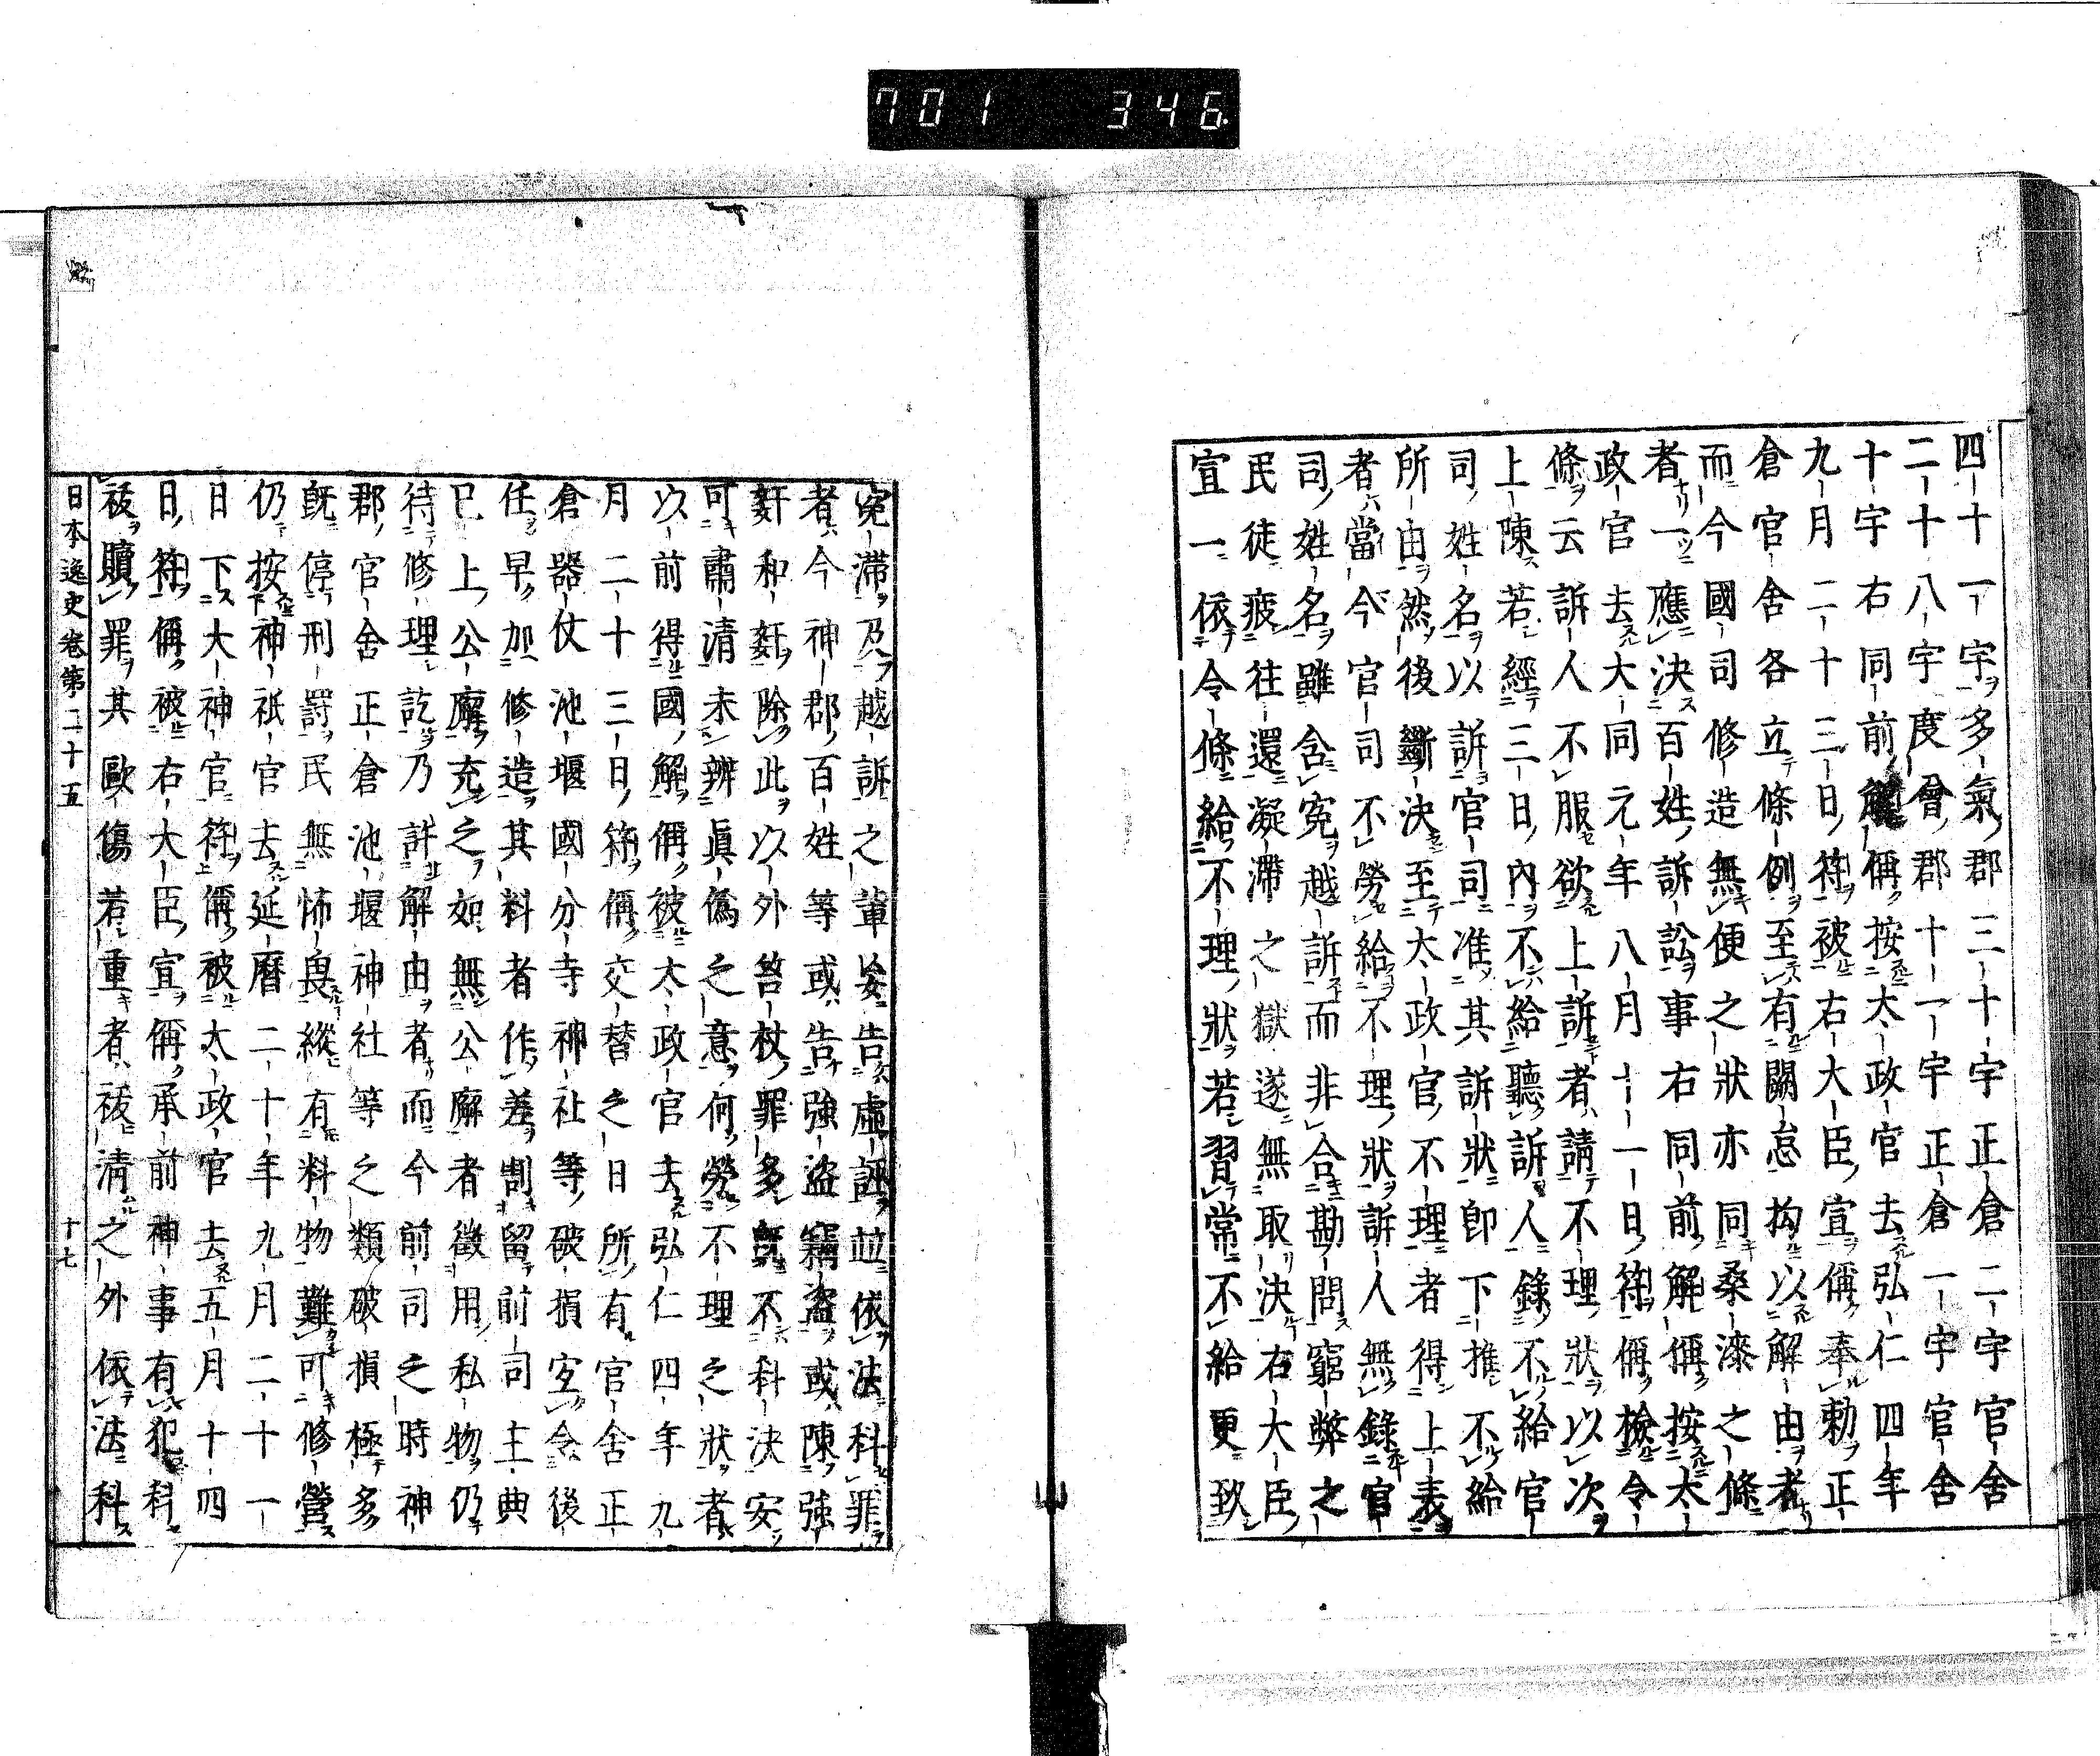 701 346
四十一宇多氣郡三十宇正倉二宇官舍
二十八宇度會郡十一宇正倉一宇官舍
十宇右同前解偁按太政官去弘仁四年
九月二十三日符被右大臣宣偁奉勅正
倉官舍各立條例至有闕怠拘以解由者
而今國司修造無便之狀亦同桑漆之條
者一應決百姓訴訟事右同前解偁按太
政官去大同元年八月十一日符偁檢令
條云訴人不服欲上訴者請不理狀以次
上陳若經三日內不給聽訴人錄不給官
司姓名以訴官司准其訴狀即下推不給
所由然後斷決至太政官不理者得上表
者當今官司不勞給不理狀訴人無錄官
司姓名雖含冤越訴而非合勘問窮弊之
民徒疲往還凝滯之獄遂無取決右大臣
宣一依令條給不理狀若習常不給更致
冤滯及越訴之輩妄告虛誣並依法科罪
者今神郡百姓等或告強盜竊盜或陳強
姧和姧除此以外笞杖罪多既不科決安
可肅清未辨眞僞之意何勞不理之狀者
以前得國解偁被太政官去弘仁四年九
月二十三日符偁交替之日所有官舍正
倉器仗池堰國分寺神社等破損宜令後
任早加修造其料者作差割留前司主典
已上公廨充之如無公廨者徵用私物仍
待修理訖乃許解由者而今前司之時神
郡官舍正倉池堰神社等之類破損極多
既停刑罰民無怖畏縱有料物難可修營
仍按神祇官去延曆二十年九月二十一
日下大神官符偁被太政官去五月十四
日符偁被右大臣宣偁承前神事有犯科
祓贖罪其歐傷若重者祓清之外依法科
日本逸史卷第二十五 十七